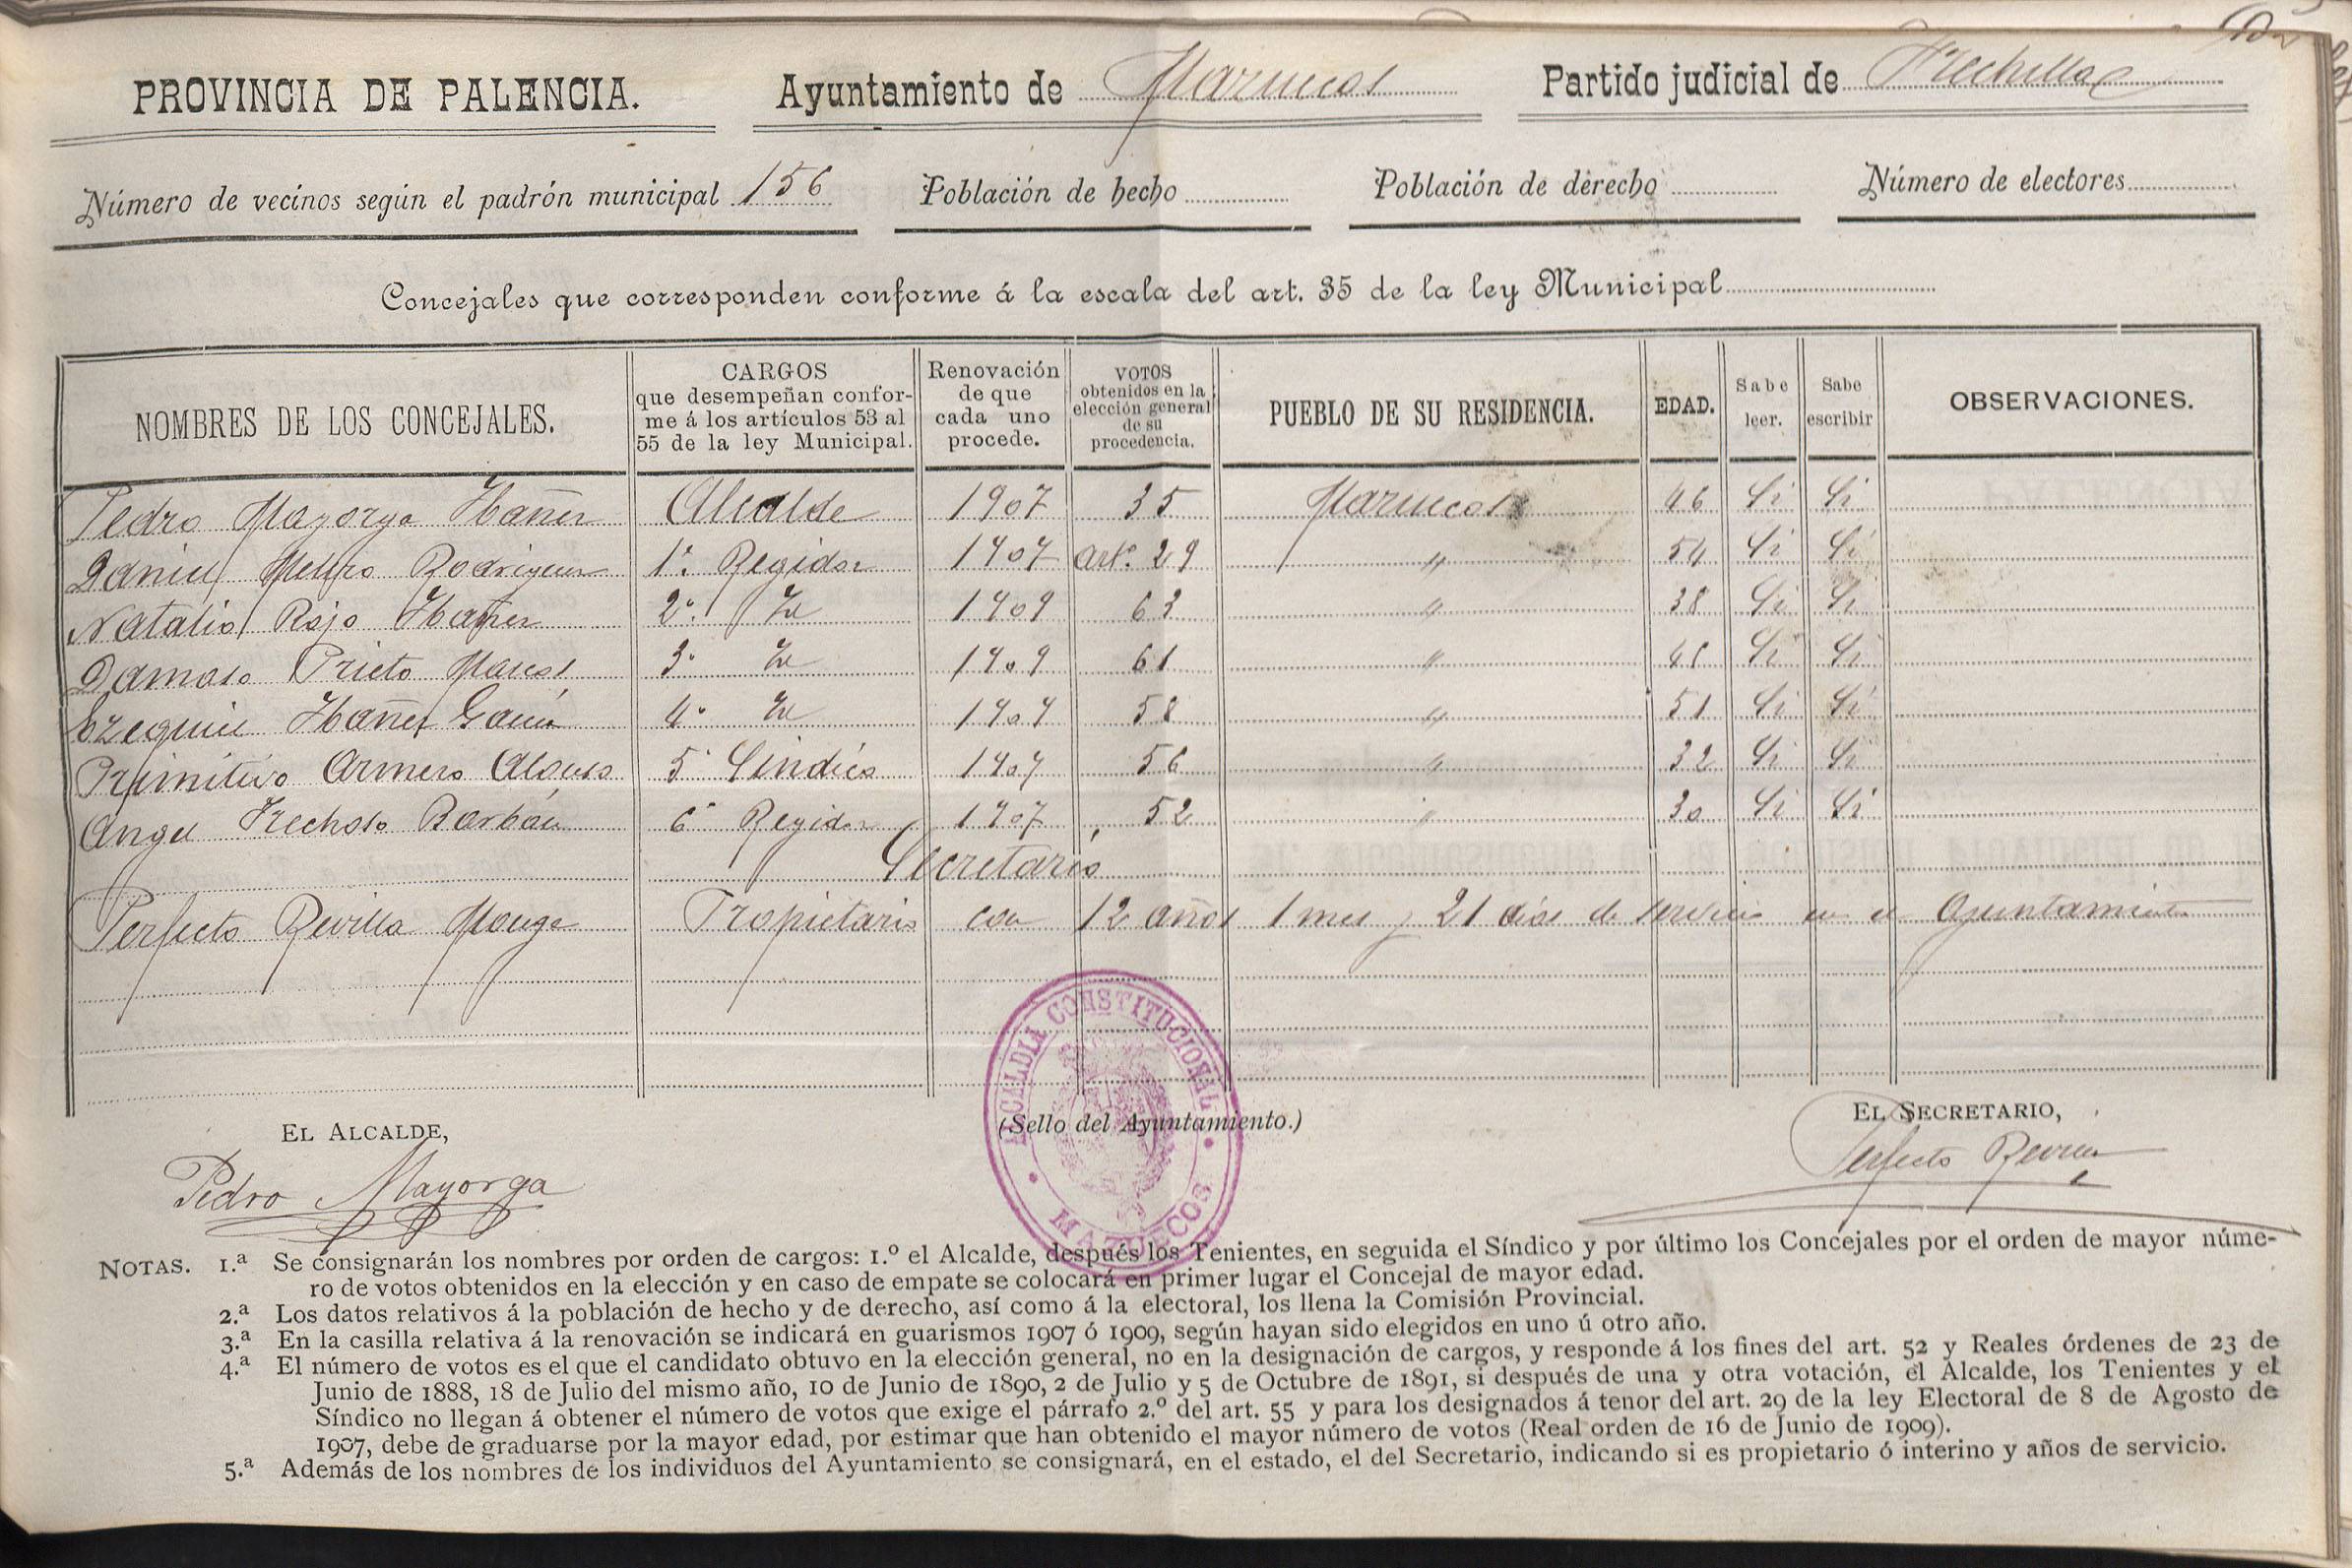 PROVINCIA DE PALENCIA. Ayuntamiento de Mazuecos Partido judicial de Frechilla
Número de vecinos según el padrón municipal 156 Población de hecho Población de derecho Número de electores
Concejales que corresponden conforme á la escala del art. 35 de la ley Municipal
NOMBRES DE LOS CONCEJALES. CARGOS que desempeñan conforme á los artículos 53 al 55 de la ley Municipal. Renovación de que cada uno procede. VOTOS obtenidos en la elección general de su procedencia. PUEBLO DE SU RESIDENCIA. EDAD. Sabe leer. Sabe escribir OBSERVACIONES.
Pedro Mayorga Ibañez Alcalde 1907 35 Mazuecos 46 Si Si
Daniel Rodriguez 1º Regidor 1909 artº 29 " 54 Si Si
Natalio Rojo Ibañez 2º Id 1909 63 " 38 Si Si
Damaso Prieto Marcos 3º Id 1909 61 " Si Si
Ezequiel Ibañez Garcia 4º Id 1909 58 " 51 Si Si
Primitivo Armero Alonso 5º Sindico 1909 56 " 32 Si Si
Angel Frechoso Barbán 6º Regidor 1907 52 " 30 Si Si
Secretario
Perfecto Revilla Monge Propietario con 12 años 1 mes y 21 dias de servicio en el Ayuntamiento
ALCALDIA CONSTITUCIONAL
MAZUECOS
EL ALCALDE, (Sello del Ayuntamiento.) EL SECRETARIO,
Pedro Mayorga Perfecto Revilla
NOTAS. 1.ª Se consignarán los nombres por orden de cargos: 1.º el Alcalde, después los Tenientes, en seguida el Síndico y por último los Concejales por el orden de mayor núme-
ro de votos obtenidos en la elección y en caso de empate se colocará en primer lugar el Concejal de mayor edad.
2.ª Los datos relativos á la población de hecho y de derecho, así como á la electoral, los llena la Comisión Provincial.
3.ª En la casilla relativa á la renovación se indicará en guarismos 1907 ó 1909, según hayan sido elegidos en uno ú otro año.
4.ª El número de votos es el que el candidato obtuvo en la elección general, no en la designación de cargos, y responde á los fines del art. 52 y Reales órdenes de 23 de
Junio de 1888, 18 de Julio del mismo año, 10 de Junio de 1890, 2 de Julio y 5 de Octubre de 1891, si después de una y otra votación, el Alcalde, los Tenientes y el
Síndico no llegan á obtener el número de votos que exige el párrafo 2.º del art. 55 y para los designados á tenor del art. 29 de la ley Electoral de 8 de Agosto de
1907, debe de graduarse por la mayor edad, por estimar que han obtenido el mayor número de votos (Real orden de 16 de Junio de 1909).
5.ª Además de los nombres de los individuos del Ayuntamiento se consignará, en el estado, el del Secretario, indicando si es propietario ó interino y años de servicio.